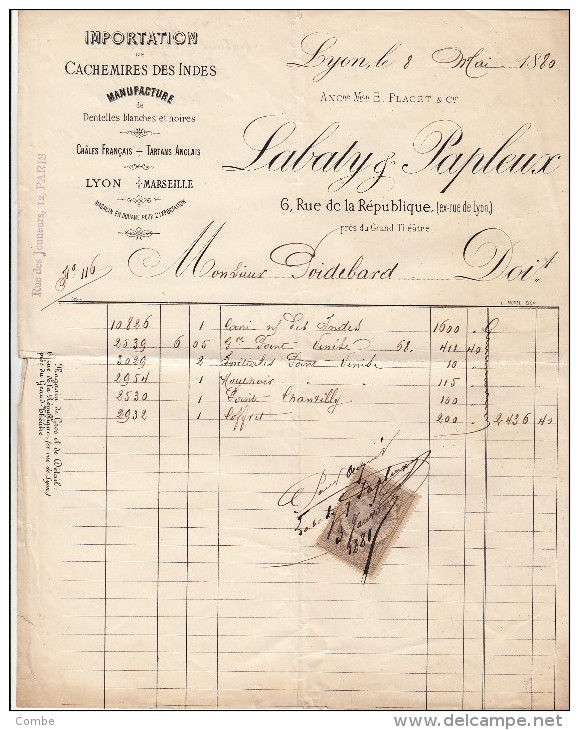 IMPORTATION
DE
CACHEMIRES DES INDES
MANUFACTURE
de
Dentelles blanches et noires
CHÂLES FRANÇAIS — TARTANS ANGLAIS
LYON MARSEILLE
MAGASIN EN DOUANE POUR L'EXPORTATION
Lyon, le 8 Mai 1880
ANCne MSon E. PLACET & Cie
Labaty & Papleux
6, Rue de la République, (ex-rue de Lyon,)
près du Grand Théâtre
Rue des Jeuneurs, 12, PARIS
No 116
Monsieur Poidebard Doit
10826 1 des Indes 1600
2539 6 05 Gre Point Venise 68. 411 40
2029 2 Point Venise 10
2954 1 Mouchoir 115
2530 1 Pointe Chantilly 100
2932 1 Coffret 200 2436 40
Magasin de Gros et de Détail
6 rue de la République, (ex rue de Lyon)
près du Grand-Théâtre
Pour acquit
Labaty & Papleux
1881
Combe
www.delcampe.net